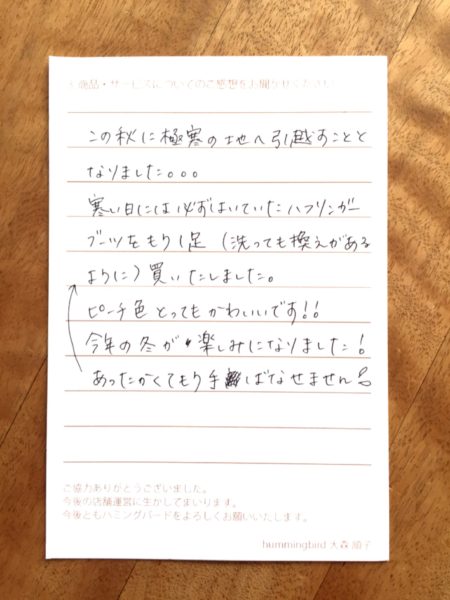 商品・サービスについてのご感想をお聞かせください
この秋に極寒の地へ引越すことと
なりました。。。
寒い日には必ずはいていたハフリンガー
ブーツをもう1足（洗っても換えがある
ように）買いたしました。
ピーチ色とってもかわいいです!!
今年の冬が楽しみになりました!
あったかくてもう手ばなせません
ご協力ありがとうございました。
今後の店舗運営に生かしてまいります。
今後ともハミングバードをよろしくお願いいたします。
hummingbird 大森 順子